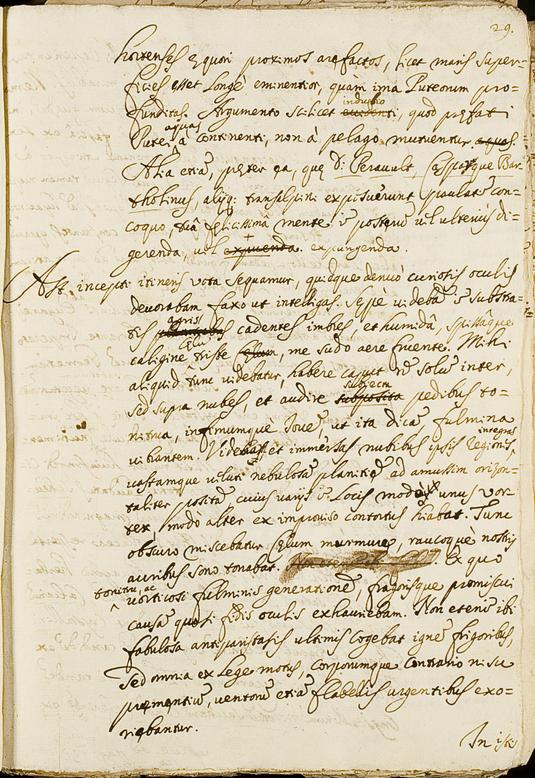 29.
hortenses æquori proximos arefactos, licet maris super=
ficies esset Longè eminentior, quàm ima Puteorum pro=
funditas. Argumento scilicet indubio, quod præfati
Putei aquas à continenti, non à pelago mutuentur.
Alia etiã, præter ea, quę D: Perault, Gasparque Bar
tholinus, alijq: transalpini exposuerunt paulatĩ con=
coquo tuâ felicissimâ mente ĩ posterũ vel ulteriùs di=
gerenda, vel expungenda.
Ast incepti itineris vota sequamur, quidque denuò curiosis oculis
devorabam faxo ut intelligas. Sępè videbã ĩ substra=
tis agris cadentes imbres, et humidâ, spissâque
caligine triste Cęlũ, me sudo aere fruente. Mihi
aliquid tunc videbatur, habere caput nõ solũ inter,
sed supra nubes, et audire subjecta pedibus to=
nitrua, infimumque Jovẽ, ut ita dicã, fulmina
vibrantem. Videbam et immersas nubibus ipsis integras Regiones,
vastamque veluti nebulosã planitiẽ ad amussim orizon=
taliter positã cuius varijs ĩ Locis modò unus vor=
tex, modo alter ex improviso contortus hiabat. Tunc
obscuro miscebatur Cęlum murmure, raucoque nostris
auribus sono tonabat. Ex quo
tonitru, ac vorticosi fulminis generationẽ, fragorisque promiscui
causã quasi fidis oculis exhauriebam. Non etenim ibi
fabulosa antiparistasis ultimis cogebat ignẽ frigoribus,
sed omnia ex Lege motus, corporumque contrario nisu
prementiũ, ventorũ etiã flabellis urgentibus exo=
riebantur.
In istis